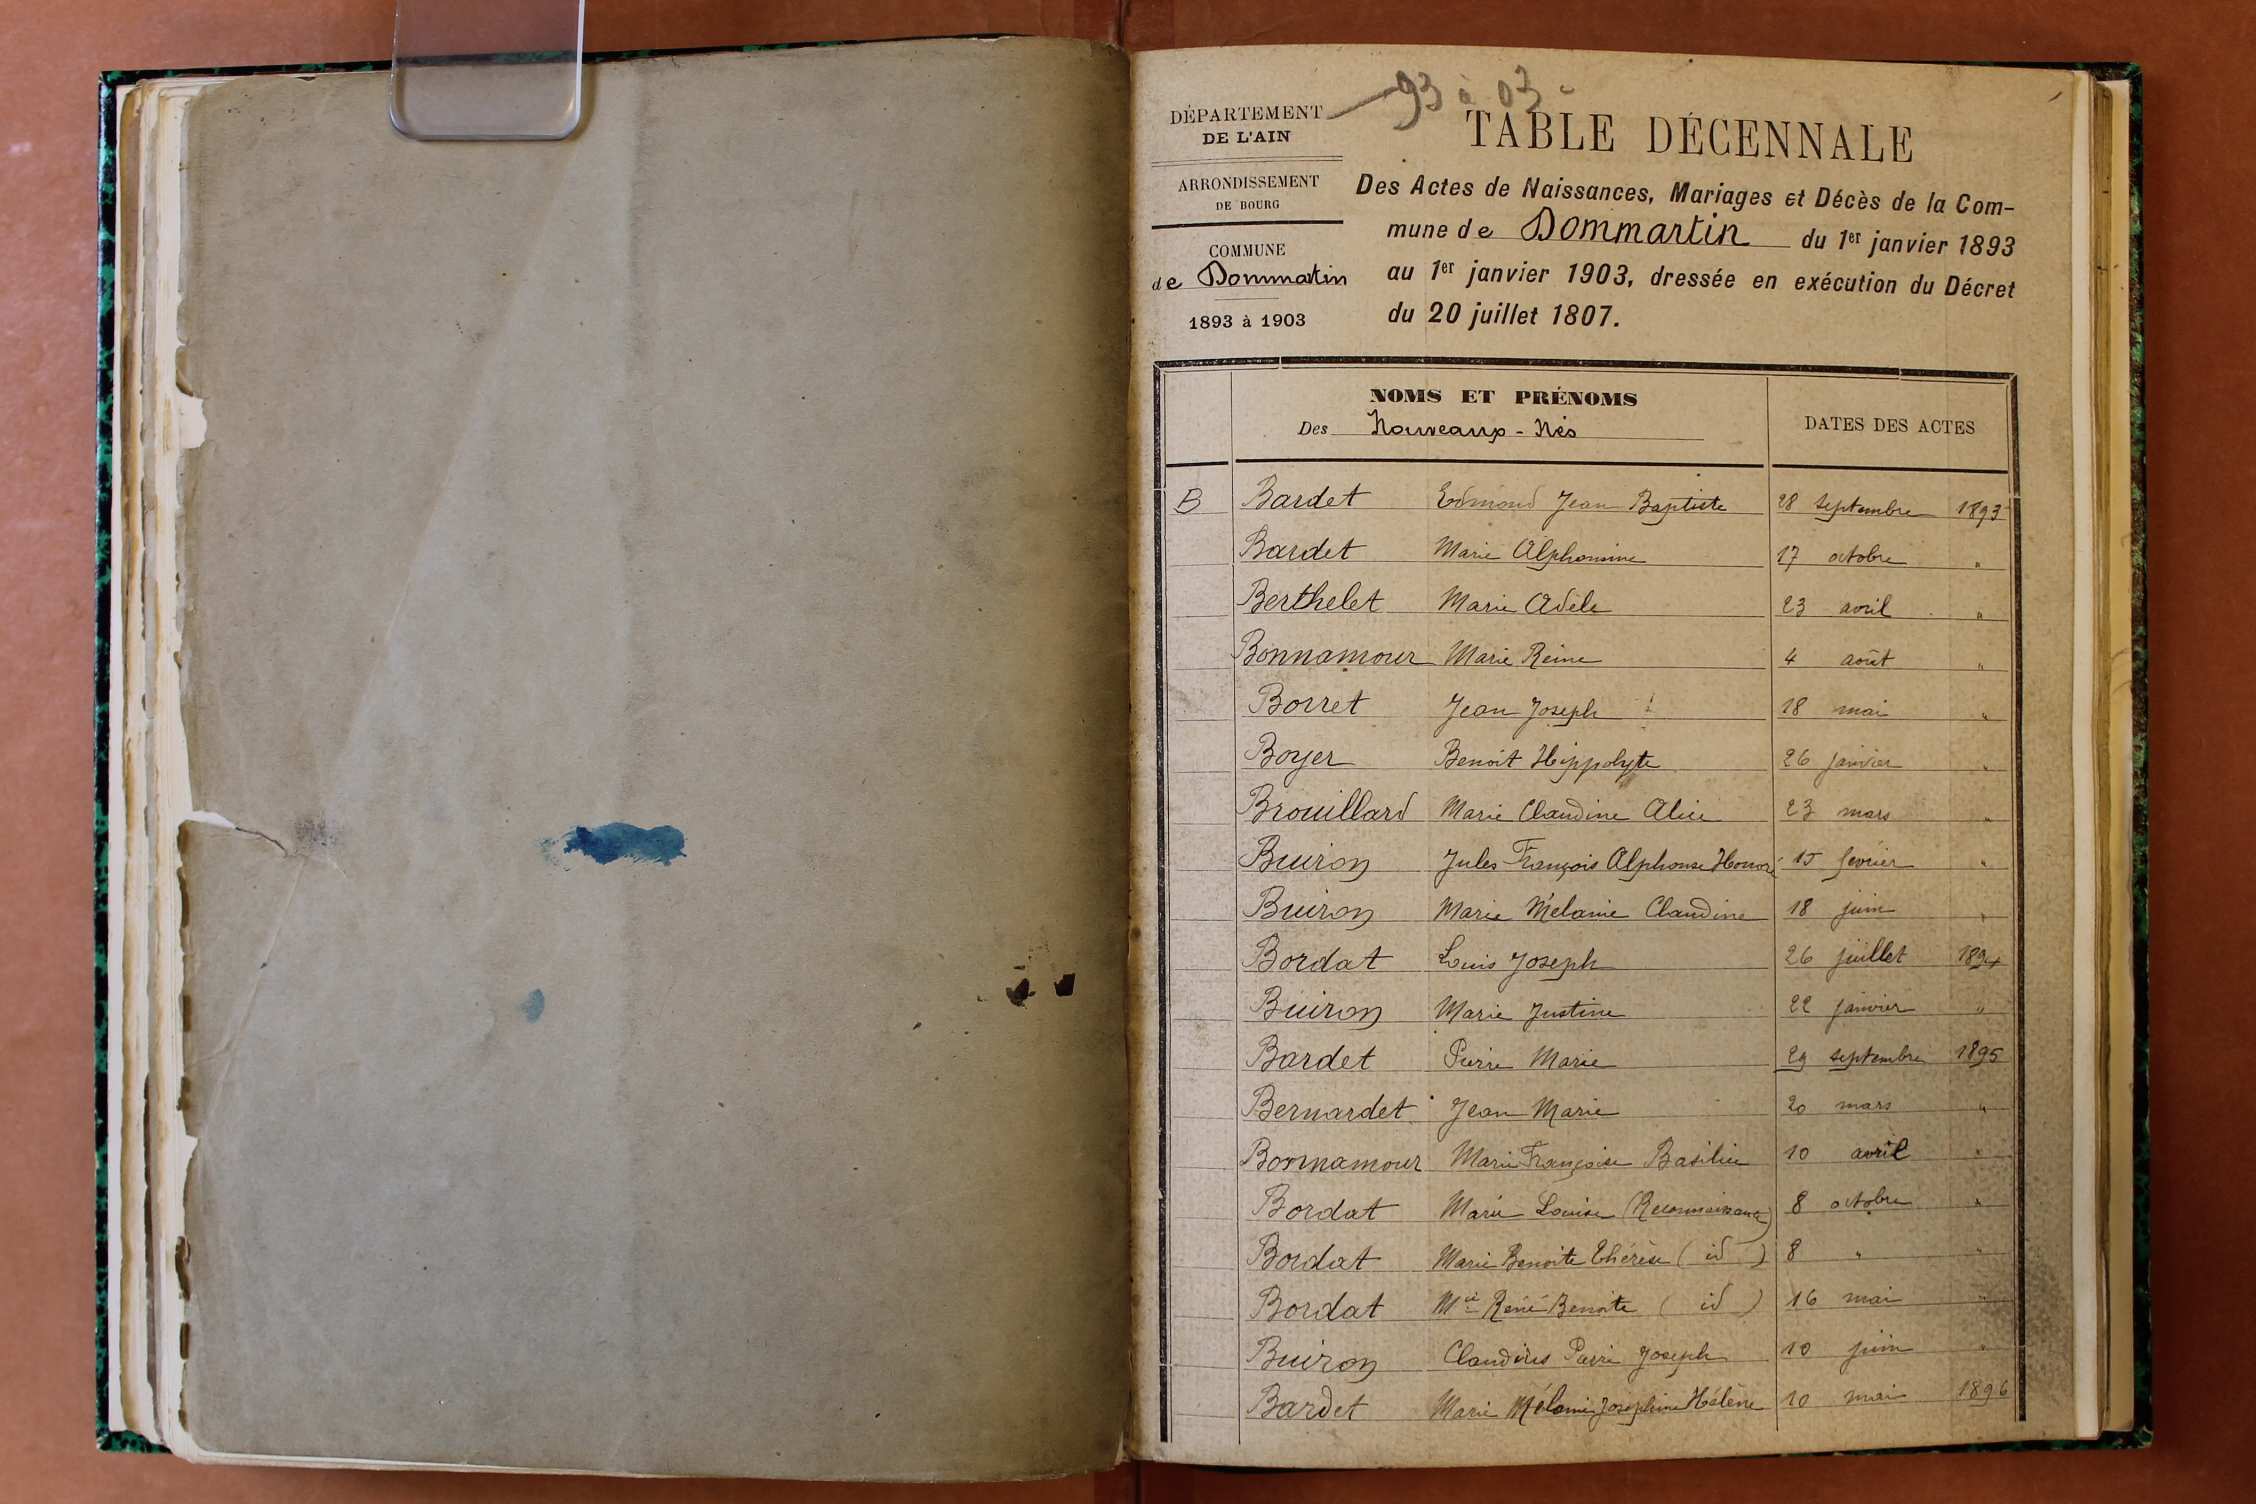 93 à 03
DÉPARTEMENT
DE L'AIN
ARRONDISSEMENT
DE BOURG
COMMUNE
de Dommartin
1893 à 1903
TABLE DÉCENNALE
Des Actes de Naissances, Mariages et Décès de la Com-
mune de Dommartin du 1er janvier 1893
au 1er janvier 1903, dressée en exécution du Décret
du 20 juillet 1807.
NOMS ET PRÉNOMS
Des Nouveaux-Nés
DATES DES ACTES
B Bardet Edmond Jean Baptiste 28 septembre 1893
Bardet Marie Alphonsine 17 octobre "
Berthelet Marie Adèle 23 avril "
Bonnamour Marie Reine 4 août "
Borret Jean Joseph 18 mai "
Boyer Benoit Hippolyte 26 janvier "
Brouillard Marie Claudine Alice 23 mars "
Buiron Jules François Alphonse Honoré 15 février "
Buiron Marie Mélanie Claudine 18 juin "
Bordat Louis Joseph 26 juillet 1894
Buiron Marie Justine 22 janvier "
Bardet Pierre Marie 29 septembre 1895
Bernardet Jean Marie 20 mars "
Bonnamour Marie Françoise Basilie 10 avril "
Bordat Marie Louise (Reconnaissance) 8 octobre "
Bordat Marie Benoite Thérèse (id) 8 " "
Bordat Mie René Benoite (id) 16 mai "
Buiron Claudius Pierre Joseph 10 juin "
Bardet Marie Mélanie Joséphine Hélène 10 mai 1896